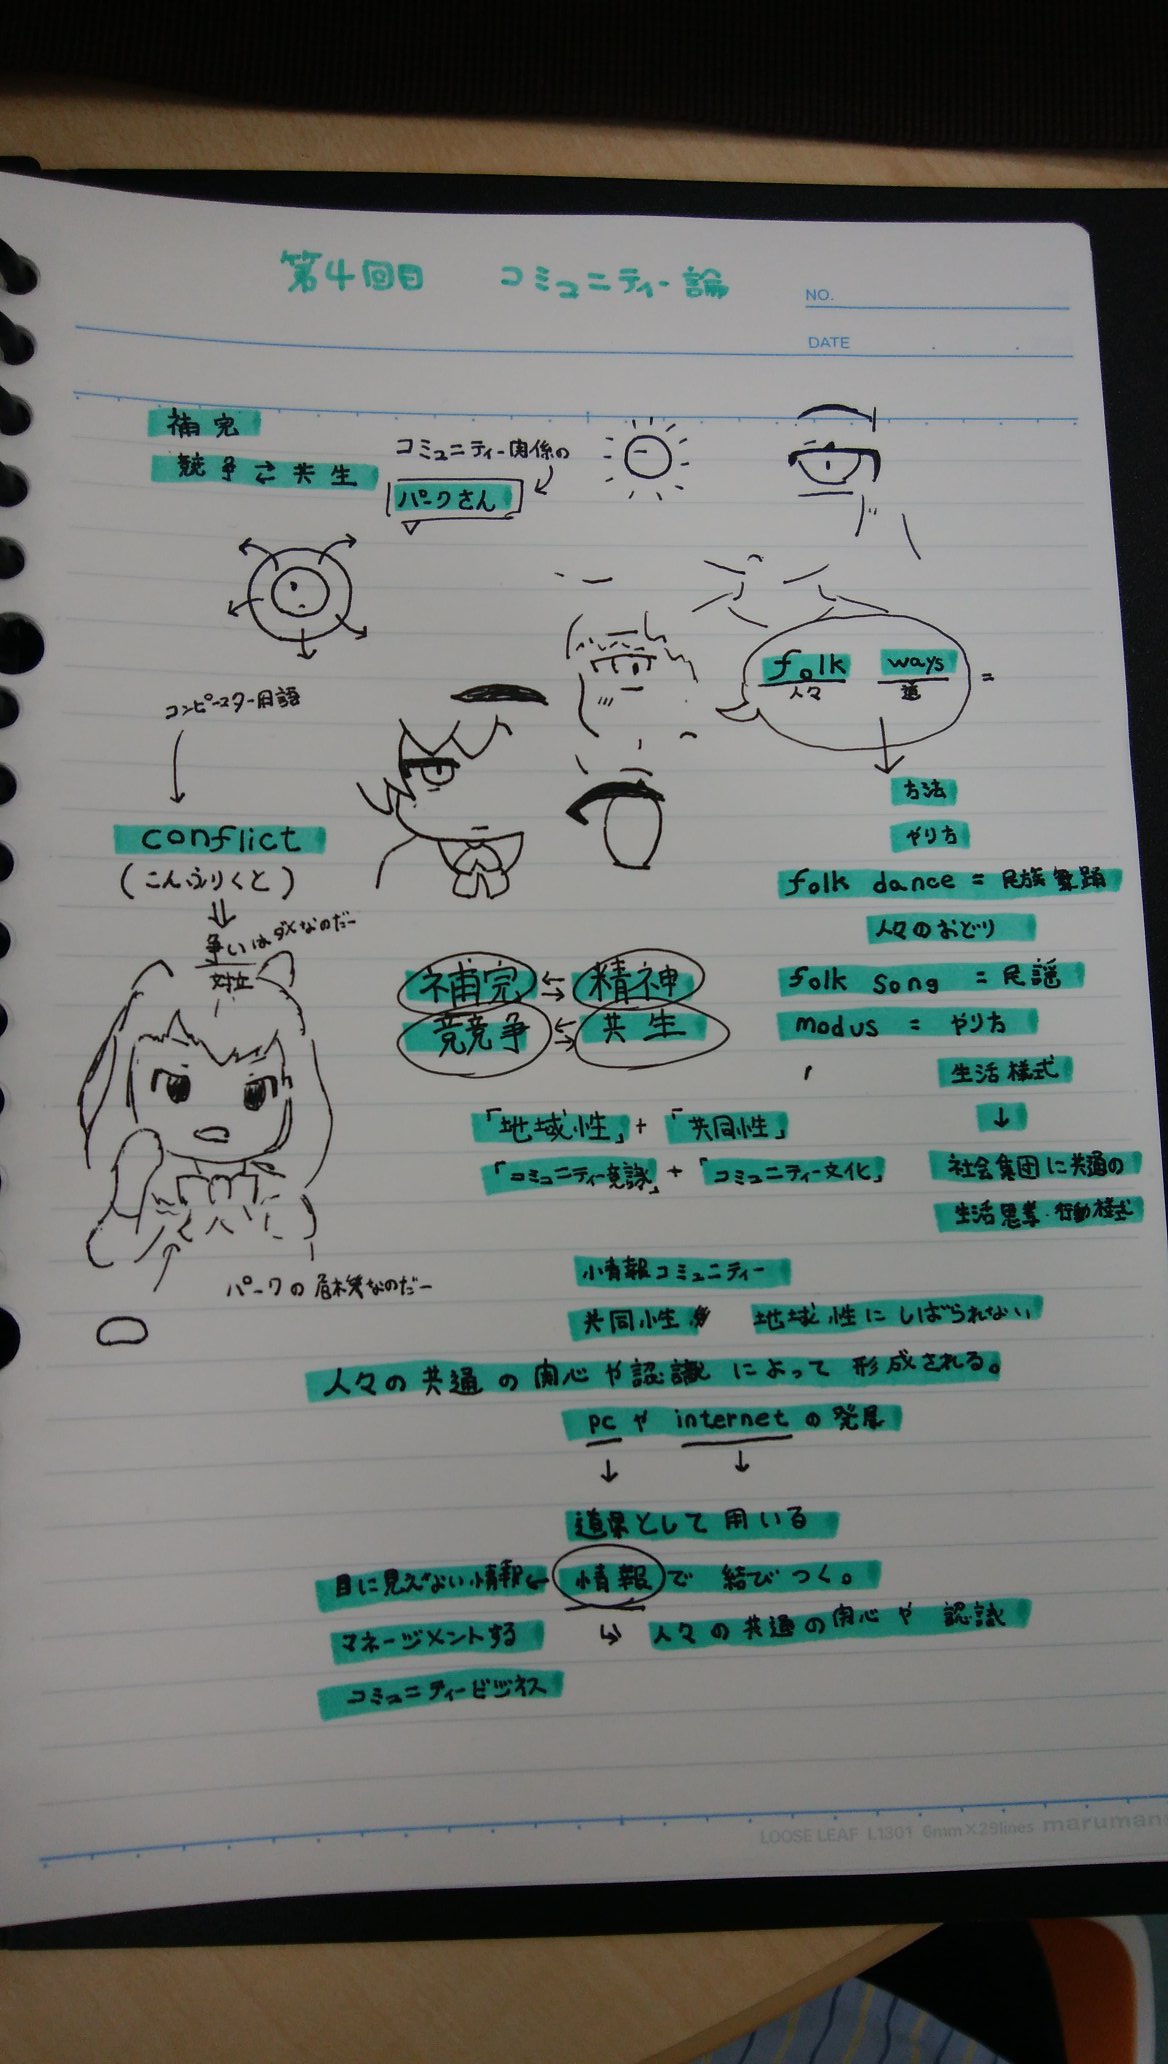 第4回目 コミュニティー論
NO.
DATE
補完
競争⇄共生
コミュニティー関係の
パークさん
folk ways =
人々 道
コンピュースター用語
方法
conflict
やり方
(こんふりくと)
folk dance = 民族舞踊
争いはダメなのだー
対立
人々のおどり
補完 ⇄ 精神
folk song = 民謡
競争 ⇄ 共生
modus = やり方
生活様式
↓
「地域性」+「共同性」
「コミュニティー意識」+「コミュニティー文化」
社会集団に共通の
生活思考・行動様式
情報コミュニティー
パークの危機なのだー
共同性 地域性にしばられない
人々の共通の関心や認識によって形成される。
pcやinternetの発展
↓ ↓
道具として用いる
目に見えない情報← 情報で結びつく。
マネージメントする ↳ 人々の共通の関心や認識
コミュニティービジネス
LOOSE LEAF L1301 6mm×29lines maruman